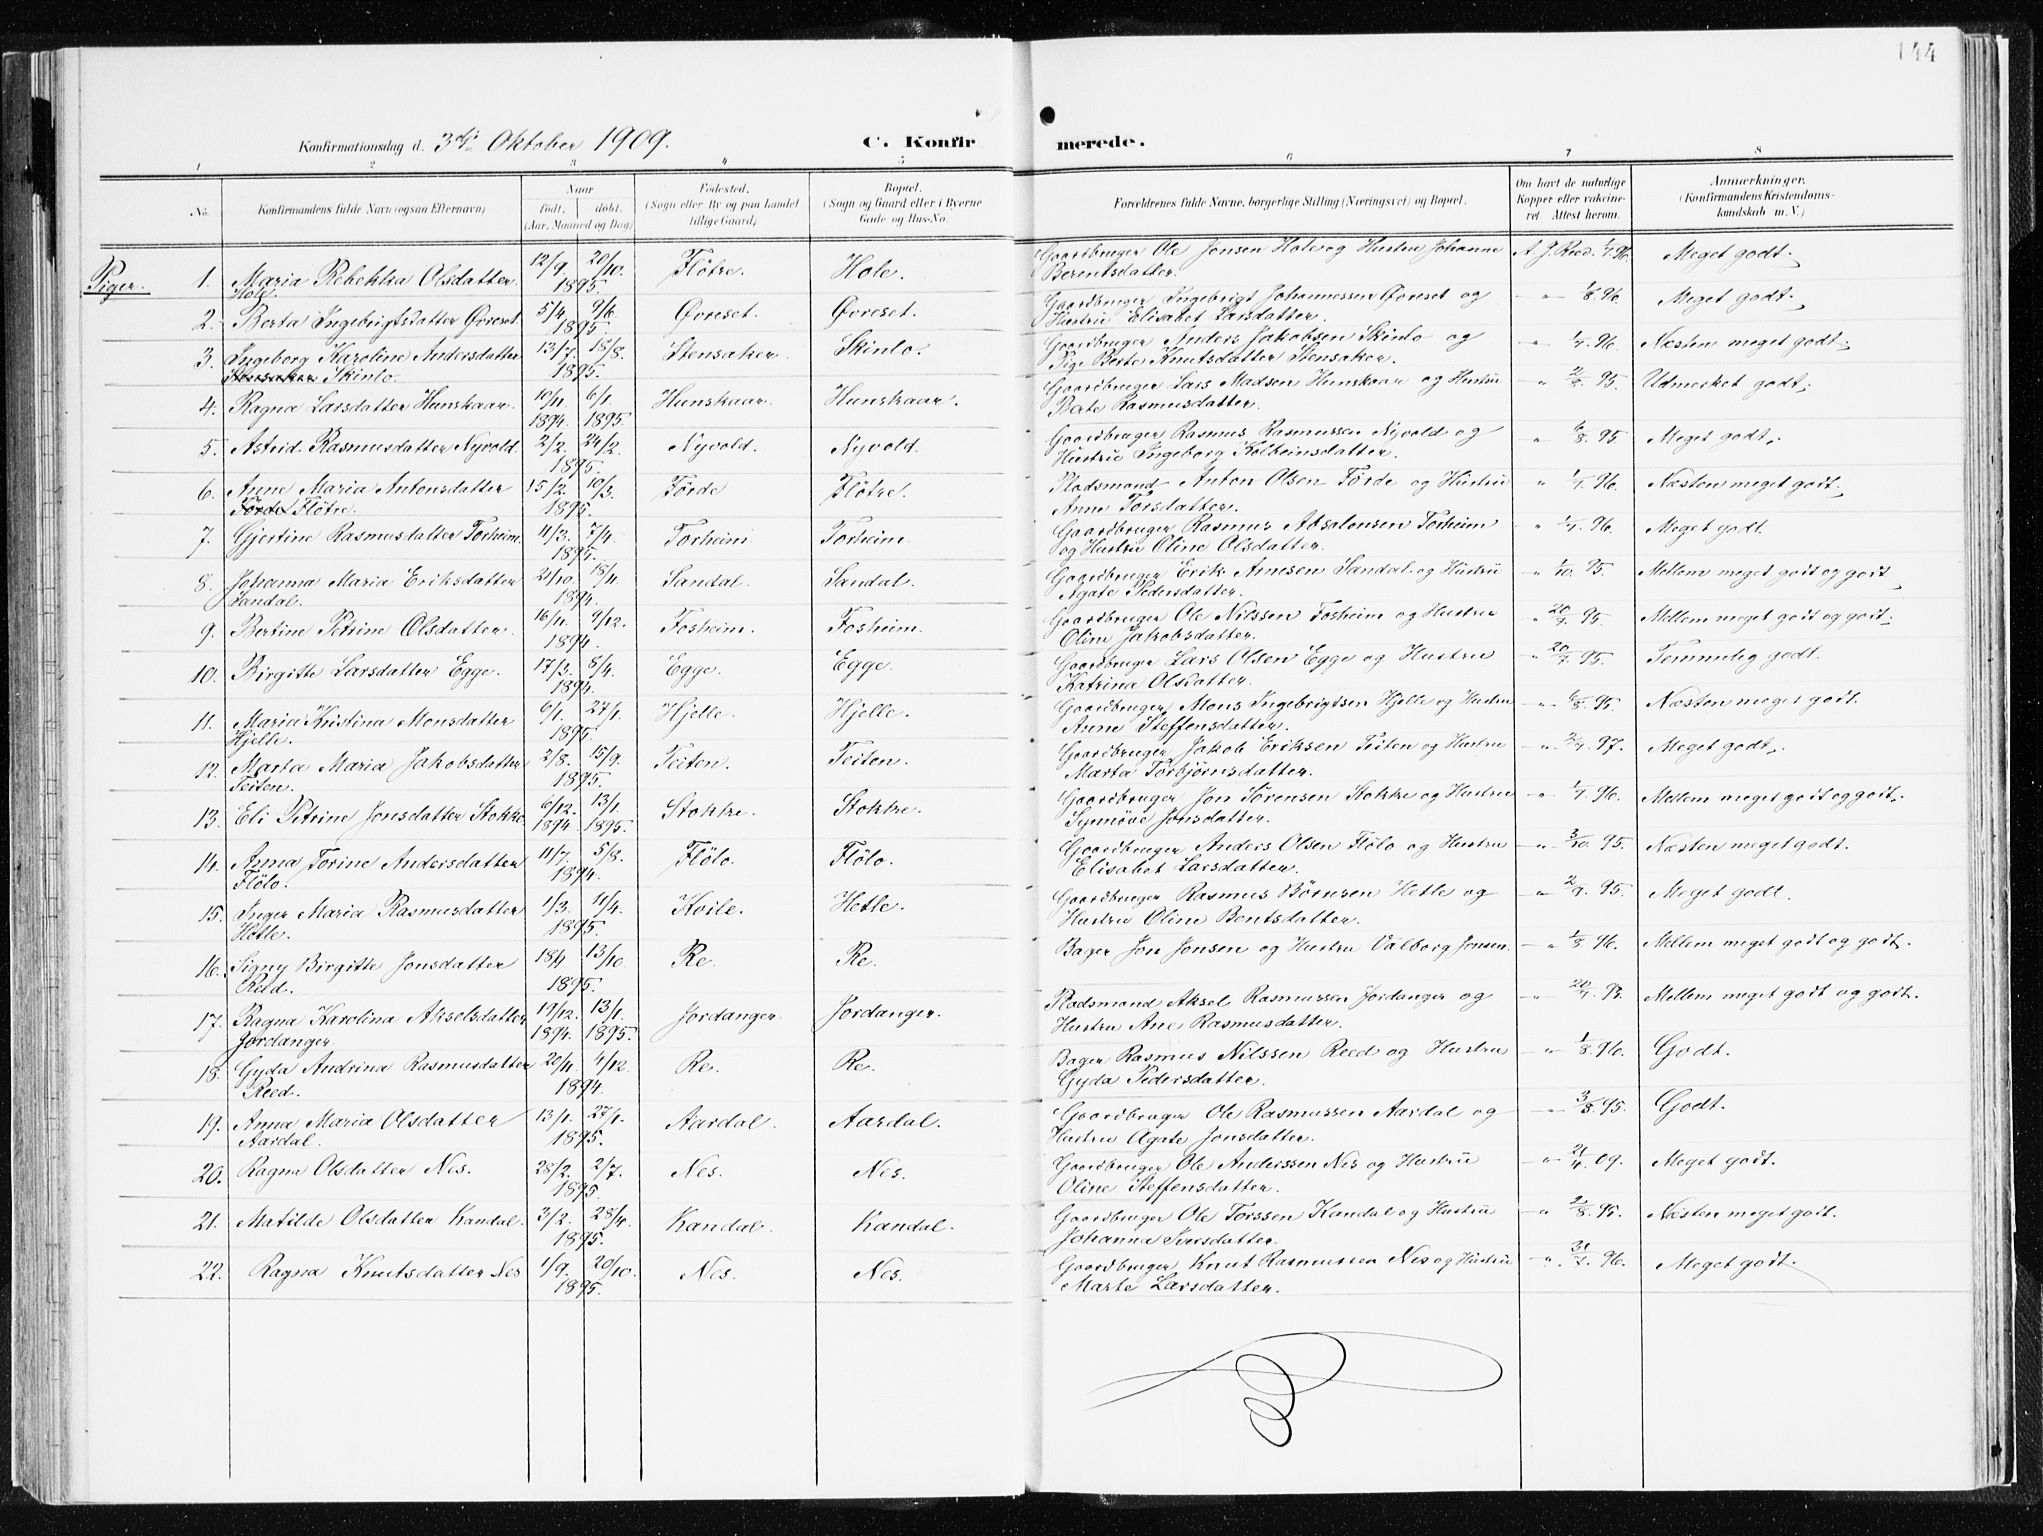 144
Konfirmationsdag d. 3die Oktober 1909.
C. Konfirmerede.
1 2 3 4 5 6 7 8
No.
Konfirmandens fulde Navn (ogsaa Efternavn)
Naar
født. døbt.
(Aar, Maaned og Dag)
Fødested.
(Sogn eller By og paa Landet
tillige Gaard)
Bopæl.
(Sogn og Gaard eller i Byerne
Gade og Hus-No.
Forældrenes fulde Navne, borgerlige Stilling (Næringsvei) og Bopæl.
Om havt de naturlige
Kopper eller vaccine-
ret Attest herom.
Anmærkninger.
(Konfirmandens Kristendoms-
kundskab m. V.)
Piger.
1. Maria Rebekka Olsdatter Hole. 12/9. 20/10. 1895. Flötre. Hole. Gaardbruger Ole Jonsen Hole og Hustru Johanne Berentsdatter. A. J. Reed. 1/7. 96. Meget godt.
2. Berta Ingebrigtsdatter Øvreset. 5/4. 9/6. 1895. Øvreset. Øvreset. Gaardbruger Ingebrigt Johannessen Øvreset og Hustru Elisabet Larsdatter. " 1/8. 96. Meget godt.
3. Ingeborg Karoline Andersdatter Stensaker Skinlo. 13/7. 18/8. 1895. Stensaker. Skinlo. Gaardbruger Anders Jakobsen Skinlo og Pige Berte Knutsdatter Stensaker. " 1/7. 96. Næsten meget godt.
4. Ragna Larsdatter Hunskaar. 10/11. 1894. 6/1. 1895. Hunskaar. Hunskaar. Gaardbruger Lars Madsen Hunskaar og Hustru Berte Rasmusdatter. " 2/8. 95. Udmerket godt.
5. Astrid Rasmusdatter Nyvold. 2/2. 24/2. 1895. Nyvold. Nyvold. Gaardbruger Rasmus Rasmussen Nyvold og Hustru Ingeborg Kolbeinsdatter. " 6/8. 95 Meget godt.
6. Anne Maria Antonsdatter Førde Flötre. 15/2. 10/3. 1895. Förde Flötre. Pladsmand Anton Olsen Förde og Hustru Anne Torsdatter. " 1/7. 96. Næsten meget godt.
7. Gjertine Rasmusdatter Torheim. 11/3. 7/4. 1895. Torheim Torheim. Gaardbruger Rasmus Absalonsen Torheim og Hustru Oline Olsdatter. " 1/7. 96. Meget godt.
8. Johanna Maria Eriksdatter Sandal. 21/10. 18/11. 1894. Sandal. Sandal. Gaardbruger Erik Arnesen Sandal og Hustru Agate Pedersdatter. " 1/10. 95. Mellem meget godt og godt
9. Bertine Petrine Olsdatter. 16/11. 9/12. 1894. Fosheim. Fosheim. Gaardbruger Ole Nilssen Fosheim og Hustru Oline Jakobsdatter. " 20/7. 95. Mellem meget godt og godt.
10. Birgitte Larsdatter Egge. 17/3. 8/4. 1894. Egge. Egge. Gaardbruger Lars Olsen Egge og Hustru Katrina Olsdatter. " 20/7. 95. Temmelig godt.
11. Maria Kristina Monsdatter Hjelle. 6/1. 27/1. 1895. Hjelle. Hjelle. Gaardbruger Mons Ingebrigtsen Hjelle og Hustru Anne Steffensdatter. " 6/8. 95. Næsten meget godt.
12. Marta Maria Jakobsdatter Teiten. 2/8. 15/9. 1895. Teiten. Teiten. Gaardbruger Jakob Eriksen Teiten og Hustru Marta Torbjörnsdatter. " 2/7. 97. Meget godt.
13. Eli Petrine Jonsdatter Stokke. 6/12. 1894. 13/1. 1895. Stokke. Stokke. Gaardbruger Jon Sörensen Stokke og Hustru Synnöve Jonsdatter. " 1/7. 96. Mellem meget godt og godt.
14. Anna Torine Andersdatter Flölo. 11/7. 5/8. 1894. Flölo. Flölo. Gaardbruger Anders Olsen Flölo og Hustru Elisabet Larsdatter. " 3/10. 95. Næsten meget godt.
15. Inger Maria Rasmusdatter Hetle. 1/3. 11/4. 1895. Kvile. Hetle. Gaardbruger Rasmus Börnsen Hetle og Hustru Oline Bentsdatter. " 2/9. 95. Meget godt.
16. Signy Birgitte Jonsdatter Reed. 18/4 13/10. 1895. Re. Re. Bager Jon Jonsen og Hustru Valborg Jonsen. " 1/8. 96. Mellem meget godt og godt.
17. Ragna Karolina Akselsdatter Jordanger. 19/12. 1894. 13/1. 1895. Jordanger. Jordanger. Pladsmand Aksel Rasmussen Jordanger og Hustru Ane Rasmusdatter. " 20/7. 95. Mellem meget godt og godt.
18. Gyda Andrina Rasmusdatter Reed. 20/11. 4/12. 1894. Re. Re. Bager Rasmus Nilssen Reed og Hustru Gyda Pedersdatter. " 1/8. 96. Godt.
19. Anna Maria Olsdatter Aardal. 13/1. 27/1. 1895. Aardal. Aardal. Gaardbruger Ole Rasmussen Aardal og Hustru Agate Jonsdatter. " 3/8. 95. Godt.
20. Ragna Olsdatter Nes. 28/2. 2/7. 1895. Nes. Nes. Gaardbruger Ole Anderssen Nes og Hustru Oline Steffensdatter. " 21/4. 09. Meget godt.
21. Matilde Olsdatter Kandal. 3/2. 28/4. 1895. Kandal. Kandal. Gaardbruger Ole Torssen Kandal og Hustru Johanna Iversdatter. " 2/8. 95. Næsten meget godt.
22. Ragna Knutsdatter Nes 1/9. 20/10. 1895. Nes. Nes. Gaardbruger Knut Rasmussen Nes og Hustru Marte Larsdatter. " 31/7. 96. Meget godt.